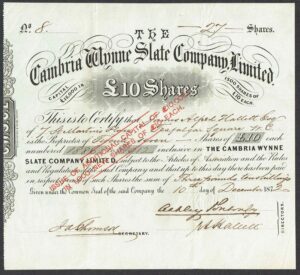 No. 8. 27 Shares.
THE
Cambria Wynne Slate Company, Limited
CAPITAL
£15,000 IN
1500 SHARES OF
£10 EACH.
£10 Shares
This is to Certify that Alfred Hallett Esq
of 7 Square
is the Proprietor of Seven Shares of £10 each
numbered inclusive in THE CAMBRIA WYNNE
SLATE COMPANY LIMITED, subject to the Articles of Association and the Rules
and Regulations of the said Company and that up to this day there has been paid
in respect of each of such Shares the sum of Three pounds
Given under the Common Seal of the said Company this 10th day of December 187
ISSUE OF CAPITAL OF
IN SHARES OF £10 EACH.
Ashley Ponsonby
Hallett
SECRETARY.
DIRECTORS